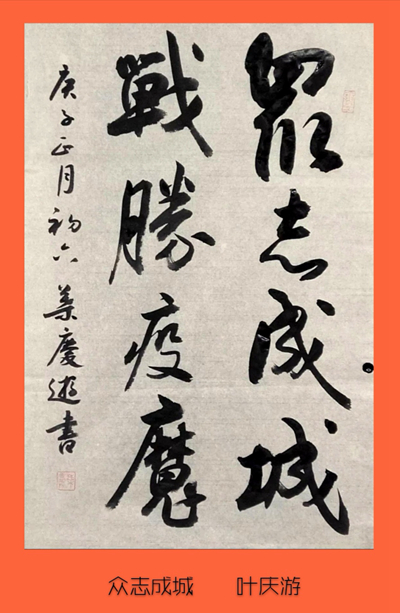 眾志成城
戰勝疫魔
庚子正月初六葉慶遊書
众志成城 叶庆游